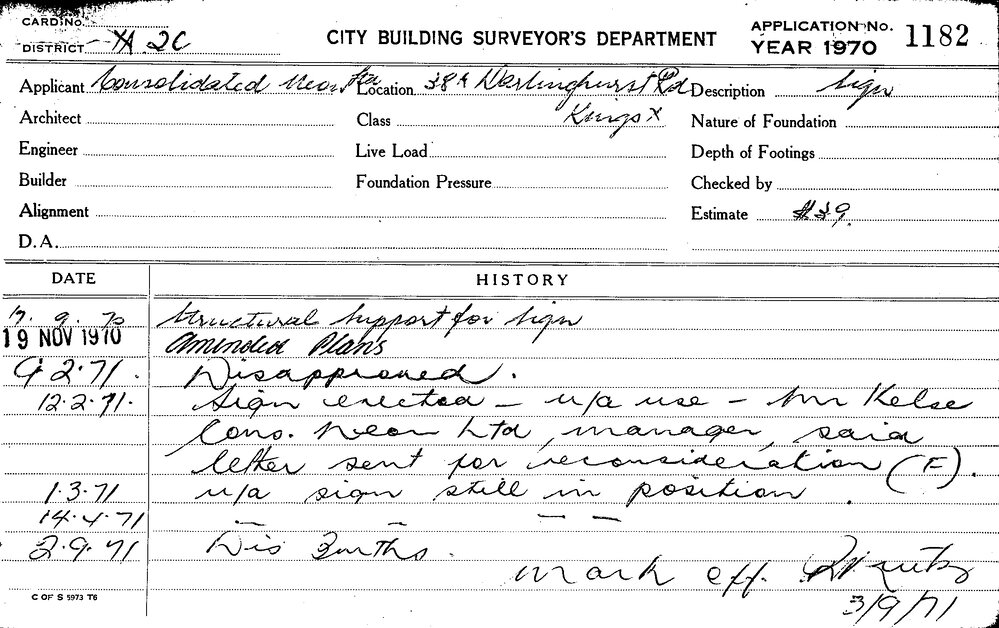 CARD No.
DISTRICT YA 2C
CITY BUILDING SURVEYOR'S DEPARTMENT
APPLICATION No. 1182
YEAR 1970
Applicant Consolidated Neon Ltd Location 38A Darlinghurst Rd Description Sign
Architect Class Kings X Nature of Foundation
Engineer Live Load Depth of Footings
Builder Foundation Pressure Checked by
Alignment Estimate
D.A.
DATE HISTORY
9. 70 Structural Support for Sign
19 NOV 1970 Amended Plans
9 2.71. Disapproved.
12.2.71. Sign erected - u/a use - Mr Kelse
Cons. Neon Ltd, manager, said
letter sent for reconsideration (F).
1.3.71 u/a sign still in position.
14.4.71 — – — —
2.9.71 Dis 3mths.
Mark off.
3/9/71
C OF S 5973 T6